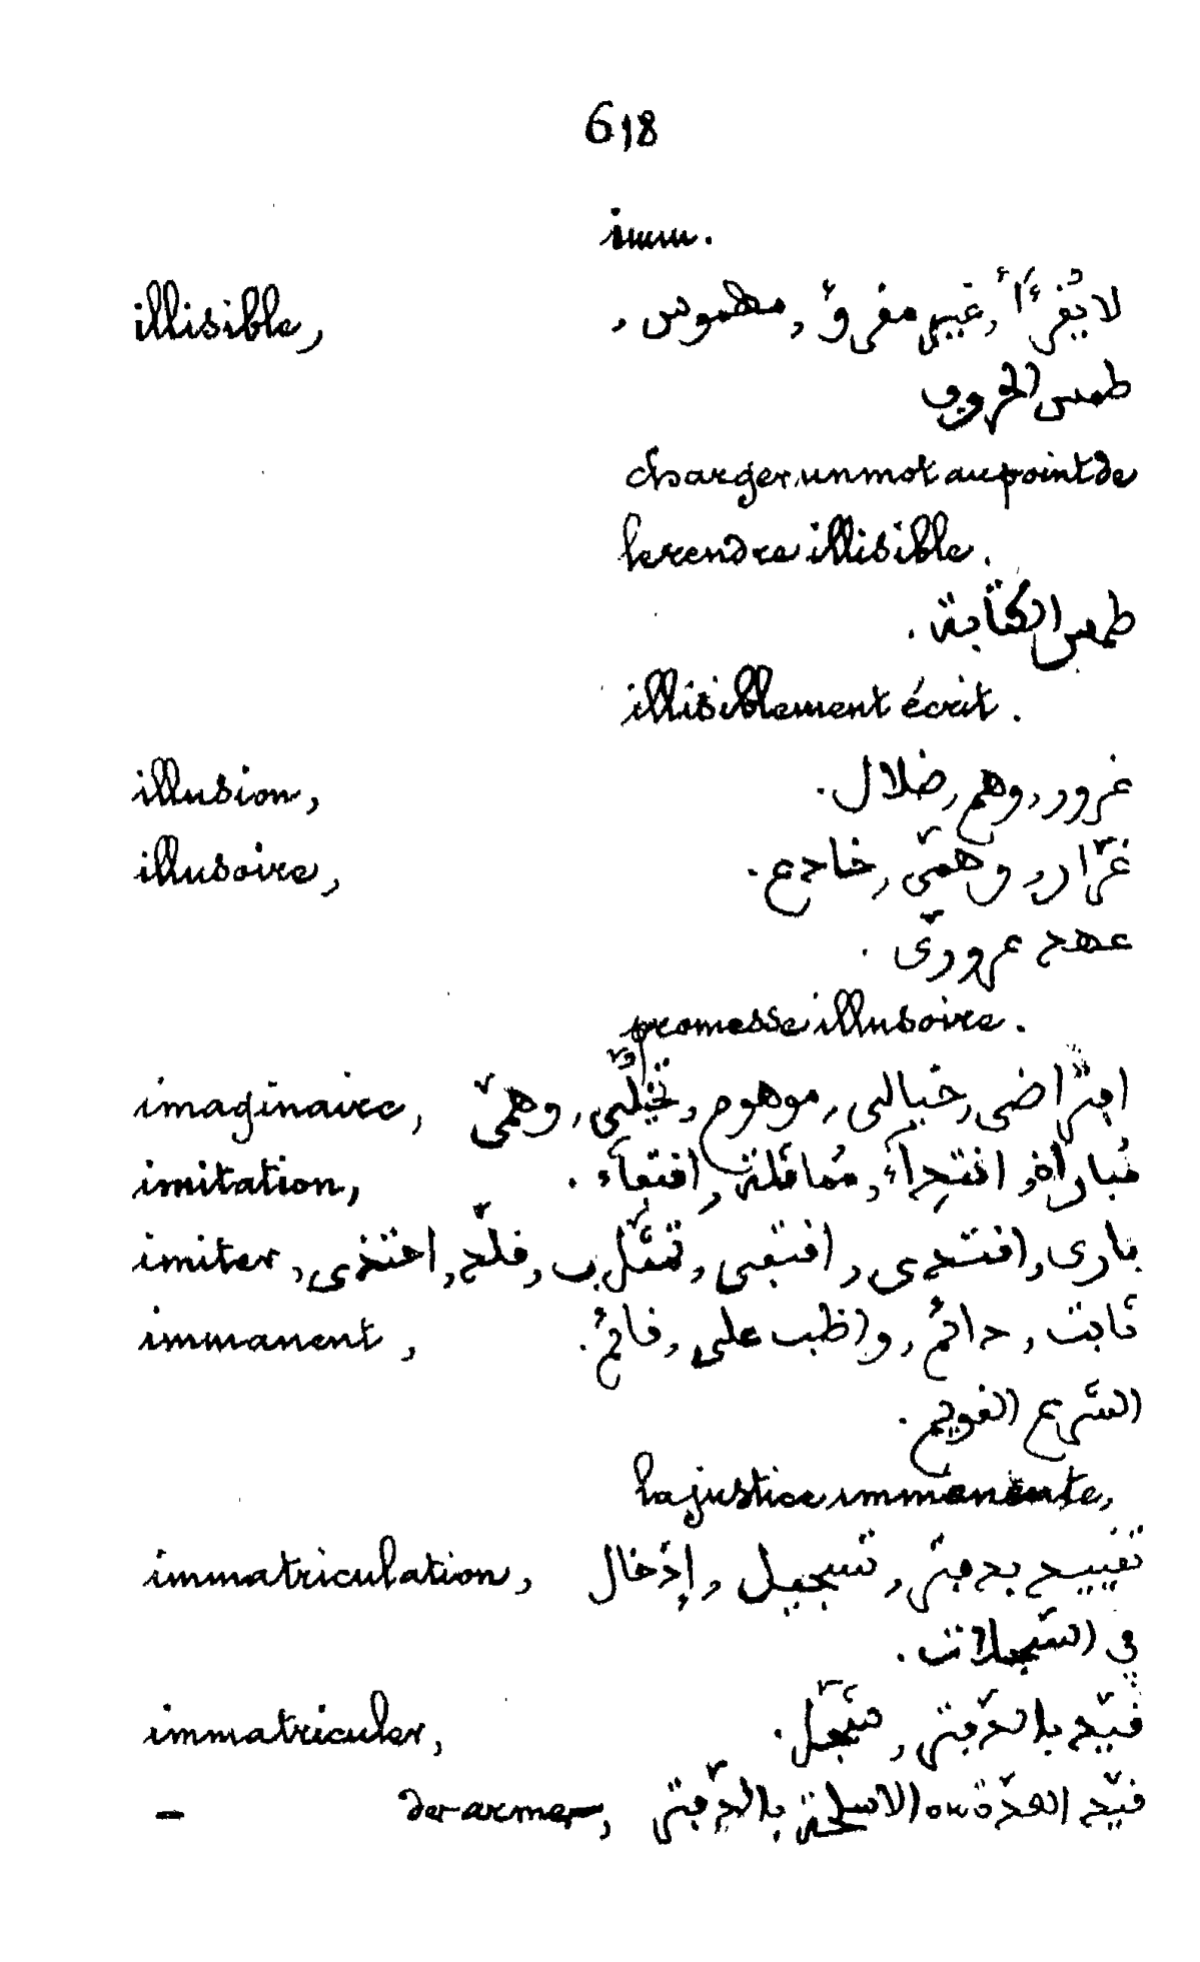 618
imm.
illisible, لا يُقرَأُ, غير مقروءٌ, مطموس,
طمس الحروف
charger un mot au point de
le rendre illisible.
طمس الكتابة.
illisiblement écrit.
illusion, غرور, وهم, ضلال.
illusoire, غرّار, وهمّى, خادع.
عهد غرورىّ.
promesse illusoire.
imaginaire, افتراضى, خيالى, موهوم, تخيُّلىّ, وهمىّ
imitation, مُباراة, اقتداء, مُماثلة, اقتفاء.
imiter, بارى, اقتدى, اقتفى, تمثّل ب, قلّد, احتذى
immanent, ثابت, دائمٌ, واظب على, قائمٌ.
الشرع القويم.
la justice immanente,
immatriculation, تقييد بدفتر, تسجيل, إدخال
فى السّجلات.
immatriculer, قيّد بالدّفتر, سجّل.
— des armes, قيّد العدّة الاسلحة بالدّفتر